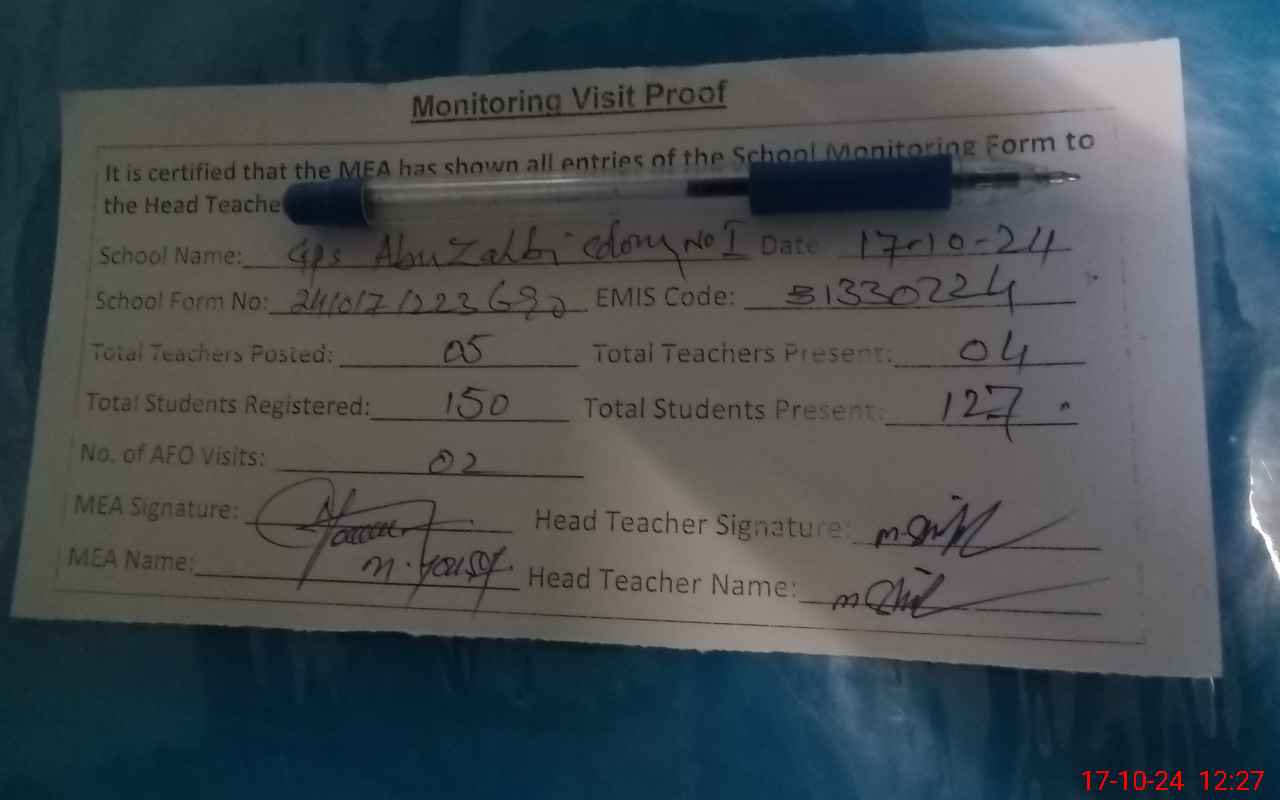 Monitoring Visit Proof
It is certified that the MEA has shown all entries of the School Monitoring Form to
the Head Teache
School Name: Gps Abu Zahbi Colony No I Date 17-10-24
School Form No: EMIS Code: 31330224
Total Teachers Posted: 05 Total Teachers Present: 04
Total Students Registered: 150 Total Students Present: 127
No. of AFO Visits: 02
MEA Signature: Head Teacher Signature:
MEA Name: M. Yousaf. Head Teacher Name:
17-10-24 12:27